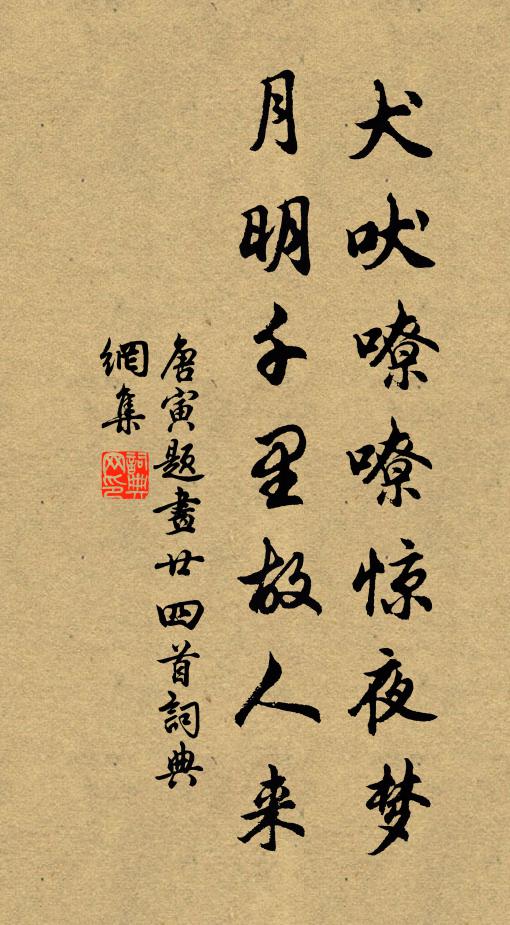 犬吠嘹嘹惊夜梦
月明千里故人来
唐寅题畫廿四首詞典
網集
詞典网印